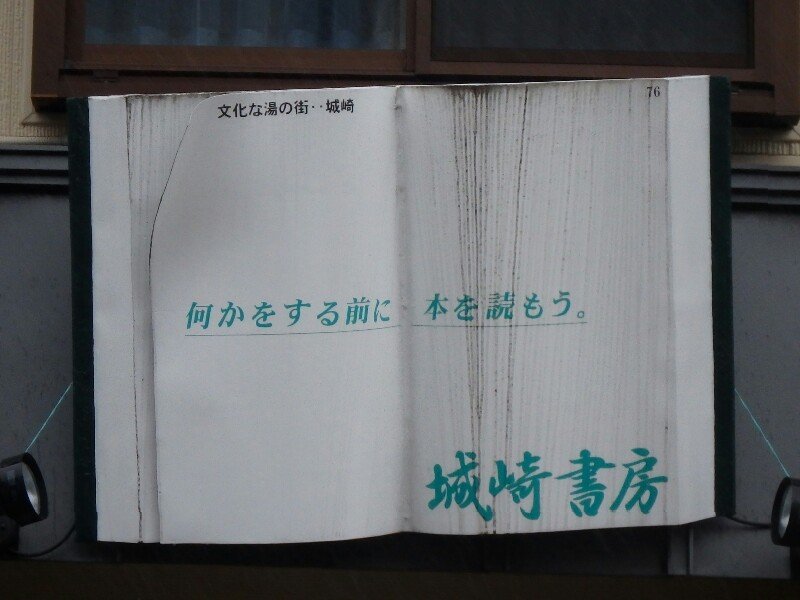 文化な湯の街‥城崎
76
何かをする前に 本を読もう。
城崎書房